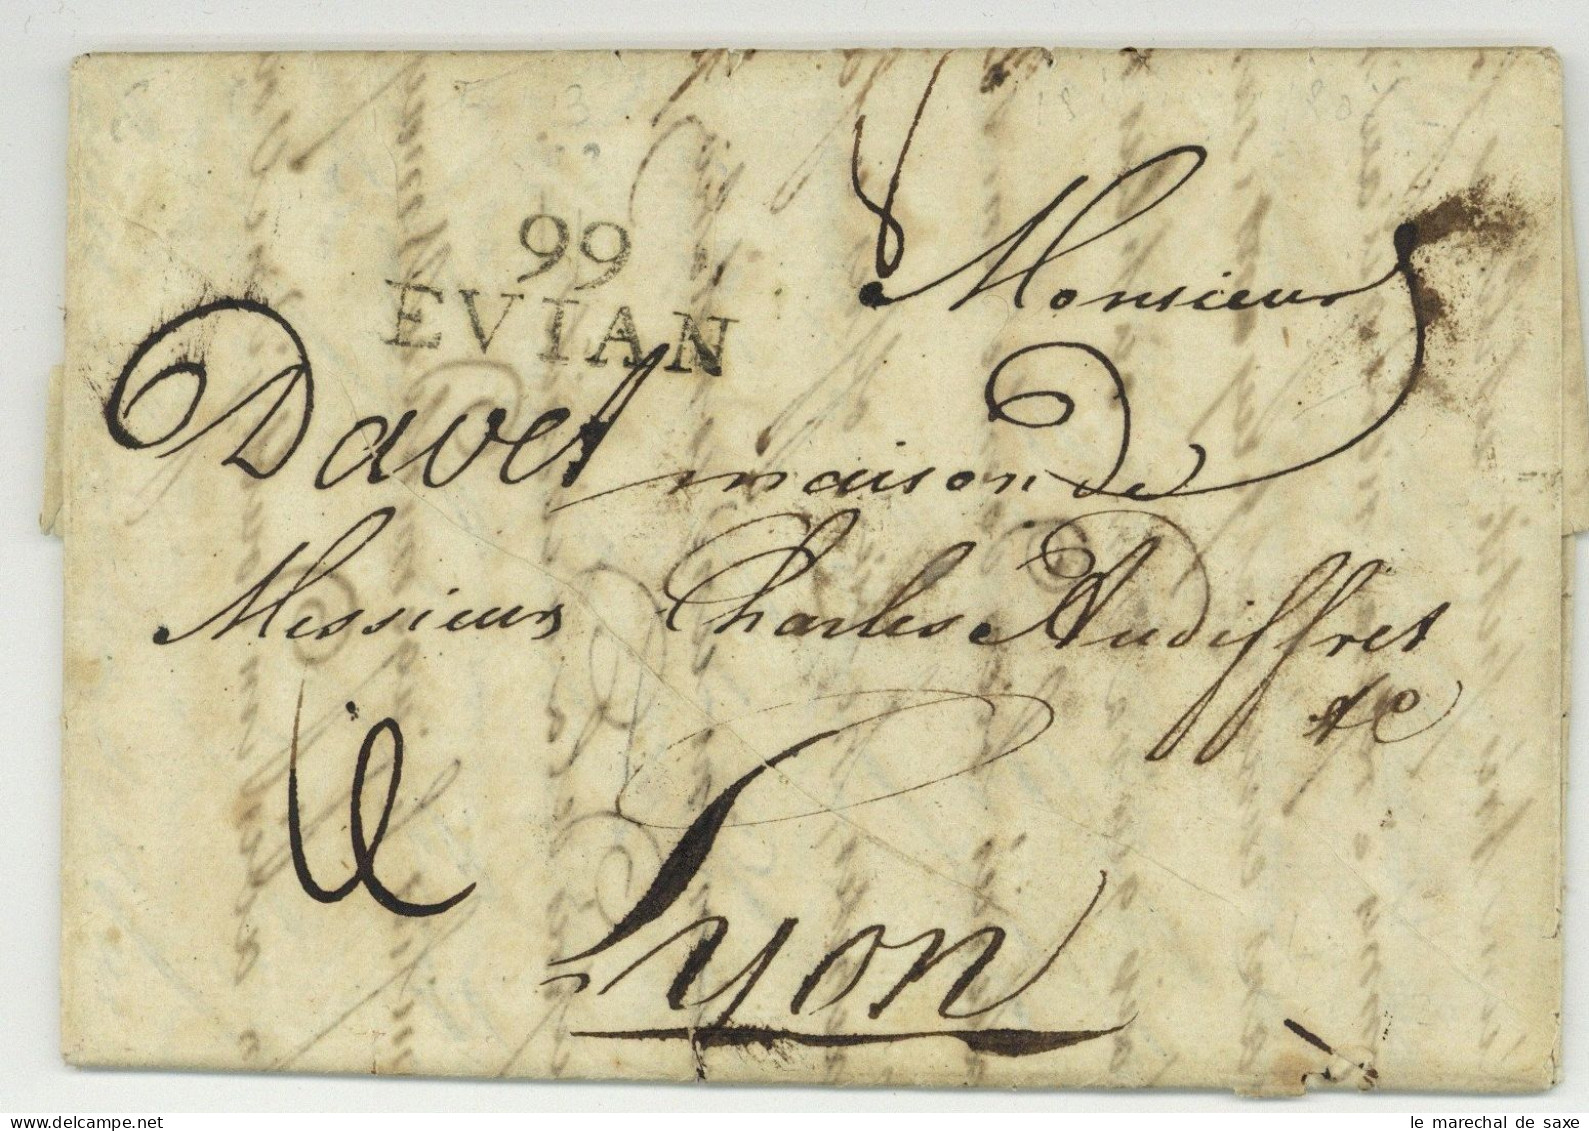 99
EVIAN
Monsieur
Davet maison de
Messieurs Charles Audiffret
&c
Lyon
le marechal de saxe